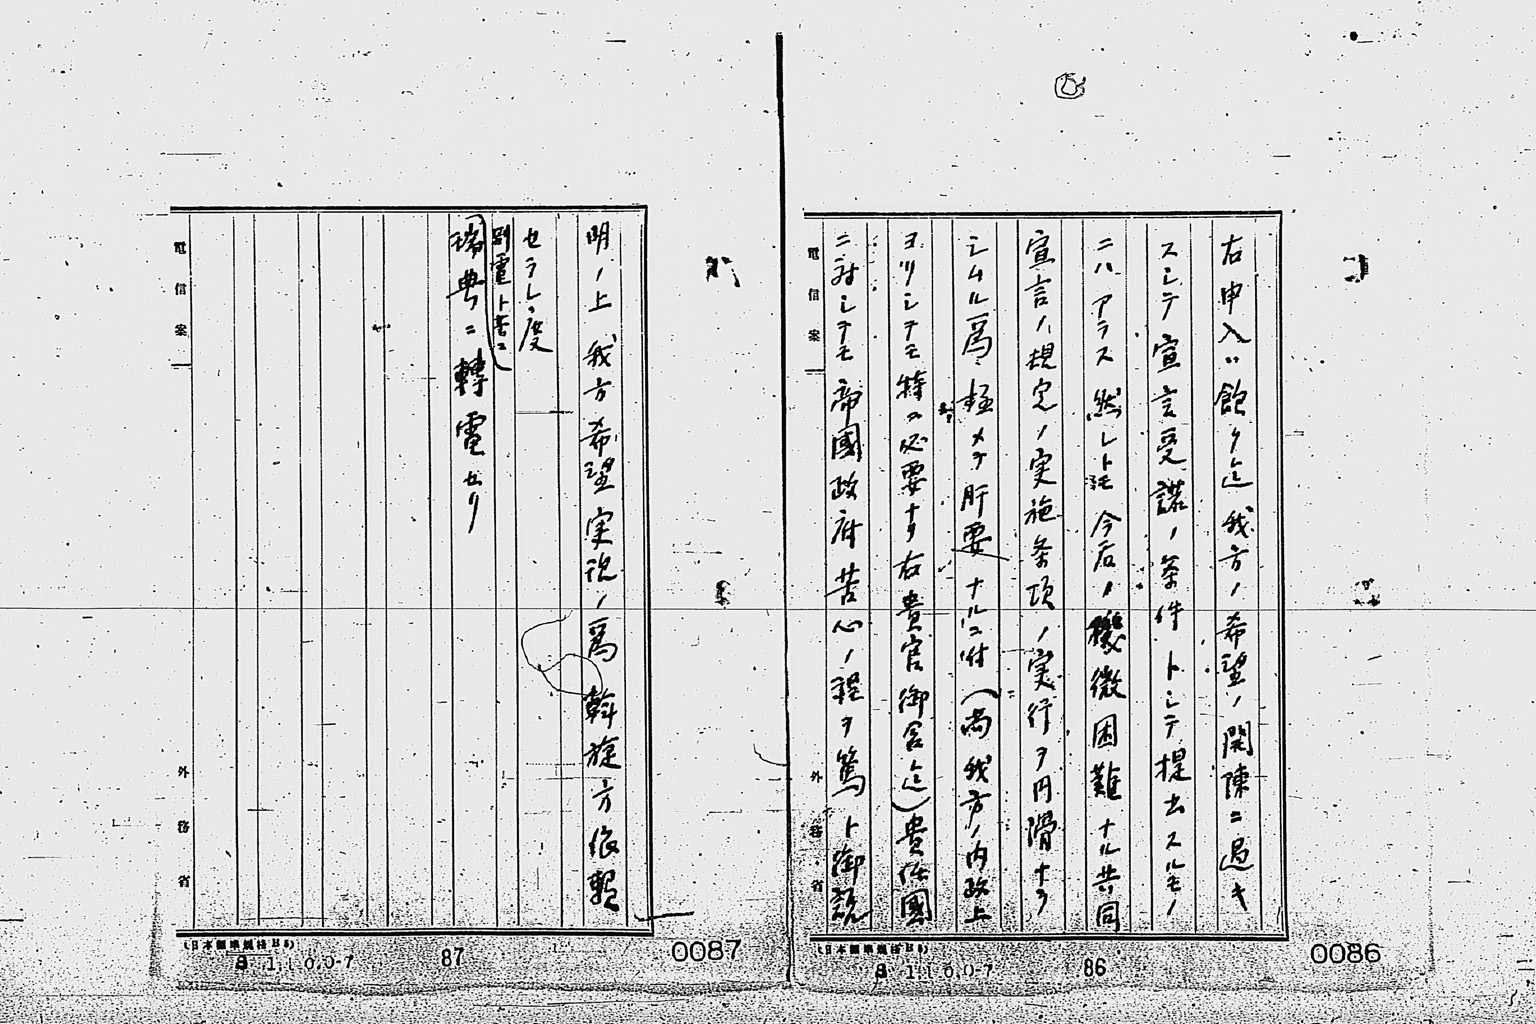 右申入ハ飽ク迄我方ノ希望ノ開陳ニ過キ
スシテ宣言受諾ノ条件トシテ提出スルモノ
ニハアラス然レトモ今后ノ機微困難ナル共同
宣言ノ規定ノ実施条項ノ実行ヲ円滑ナラ
シムル為極メテ肝要ナルニ付(尚我方ノ内政上
ヨリシテモ特ニ必要ナリ右貴官御含迄)貴任國
ニ対シテモ帝國政府苦心ノ程ヲ篤ト御説
電信案
外務省
(日本標準規格B5)
S 1.1.0.0-7
86
0086
明ノ上我方希望実現ノ為斡旋方依頼
セラレ度
別電ト共ニ
瑞典ニ轉電セリ
電信案
外務省
(日本標準規格B5)
S 1.1.0.0-7
87
0087